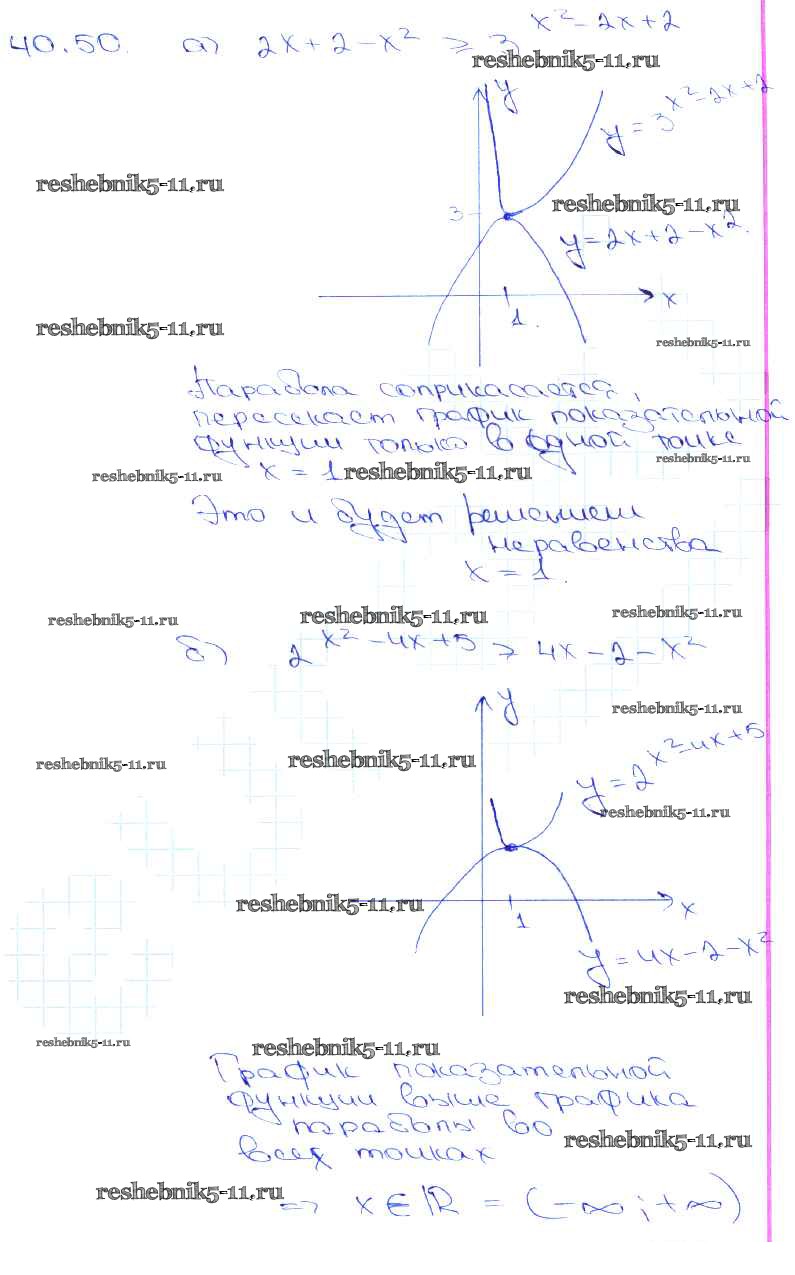 40.50. а) 2x + 2 - x² ≥ 3^(x² - 2x + 2)
reshebnik5-11.ru
y
y = 3^(x² - 2x + 2)
reshebnik5-11.ru
reshebnik5-11.ru
3
y = 2x + 2 - x².
x
1.
reshebnik5-11.ru
reshebnik5-11.ru
Парабола соприкасается,
пересекает график показательной
функции только в одной точке
reshebnik5-11.ru
x = 1
reshebnik5-11.ru
reshebnik5-11.ru
Это и будет решением
неравенства
x = 1.
reshebnik5-11.ru
reshebnik5-11.ru
reshebnik5-11.ru
б) 2^(x² - 4x + 5) ≥ 4x - 2 - x²
y
reshebnik5-11.ru
reshebnik5-11.ru
reshebnik5-11.ru
y = 2^(x² - 4x + 5)
reshebnik5-11.ru
reshebnik5-11.ru
x
1
y = 4x - 2 - x²
reshebnik5-11.ru
reshebnik5-11.ru
reshebnik5-11.ru
График показательной
функции выше графика
параболы во
reshebnik5-11.ru
всех точках
reshebnik5-11.ru
⇒ x ∈ R = (-∞; +∞)